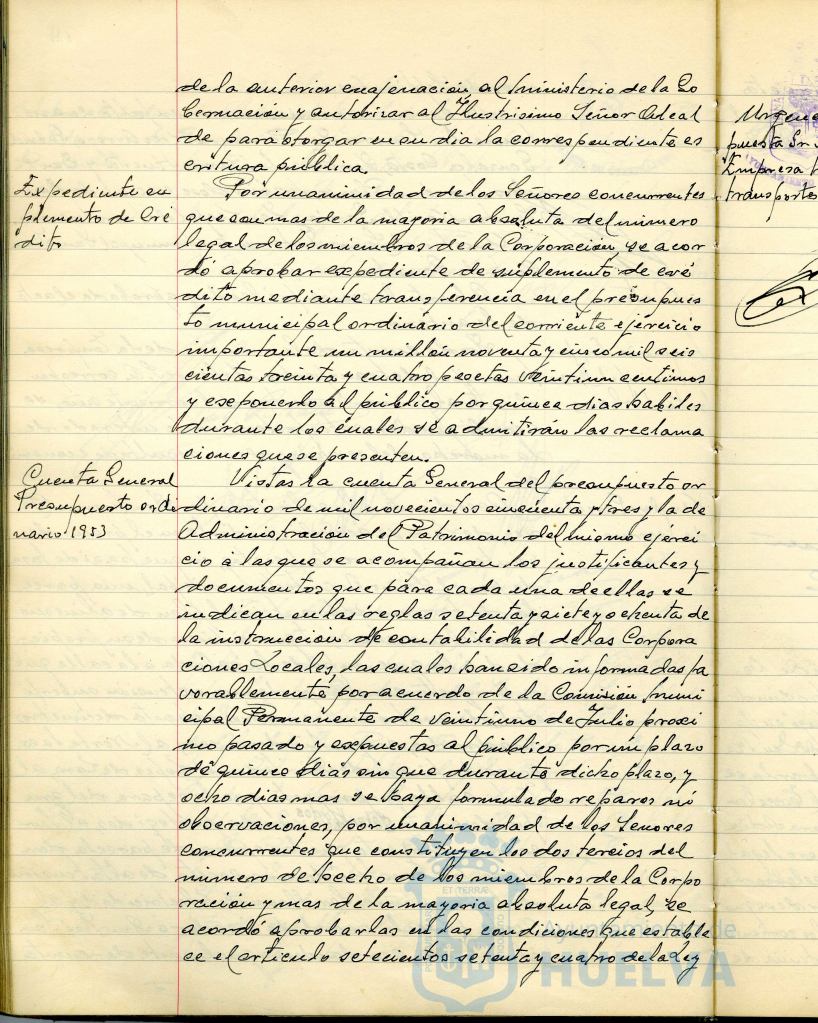 de la anterior enajenación, al Ministerio de la Go
bernación y autorizar al Ilustrisimo Señor Alcal
de para otorgar en su dia la correspondiente es
critura pública.
Expediente su
plemento de Cré
dito
Por unanimidad de los Señores concurrentes
que son mas de la mayoria absoluta del número
legal de los miembros de la Corporación, se acor
dó aprobar expediente de suplemento de cré
dito mediante transferencia en el presupues
to municipal ordinario del corriente ejercicio
importante un millón noventa y cinco mil seis
cientas treinta y cuatro pesetas veintiun centimos
y exponerlo al público por quince dias habiles
durante los cuales se admitirán las reclama
ciones que se presenten.
Cuenta General
Presupuesto ordi
nario 1953
Vistas la cuenta General del presupuesto or
dinario de mil novecientos cincuenta y tres y la de
Administración del Patrimonio del mismo ejerci
cio a las que se acompañan los justificantes y
documentos que para cada una de ellas se
indican en las reglas setenta y siete y ochenta de
la instrucción de contabilidad de las Corpora
ciones Locales, las cuales han sido informadas fa
vorablemente por acuerdo de la Comisión Muni
cipal Permanente de veintiuno de Julio proxi
mo pasado y expuestas al público por un plazo
de quince dias sin que durante dicho plazo, y
ocho dias mas se haya formulado reparos ni
observaciones, por unanimidad de los Señores
concurrentes que constituyen los dos tercios del
número de hecho de los miembros de la Corpo
ración y mas de la mayoria absoluta legal, se
acordó aprobarlas en las condiciones que estable
ce el articulo setecientos setenta y cuatro de la Ley
Urgenc
puesta Sr.
Empresa
transportes
de
HUELVA